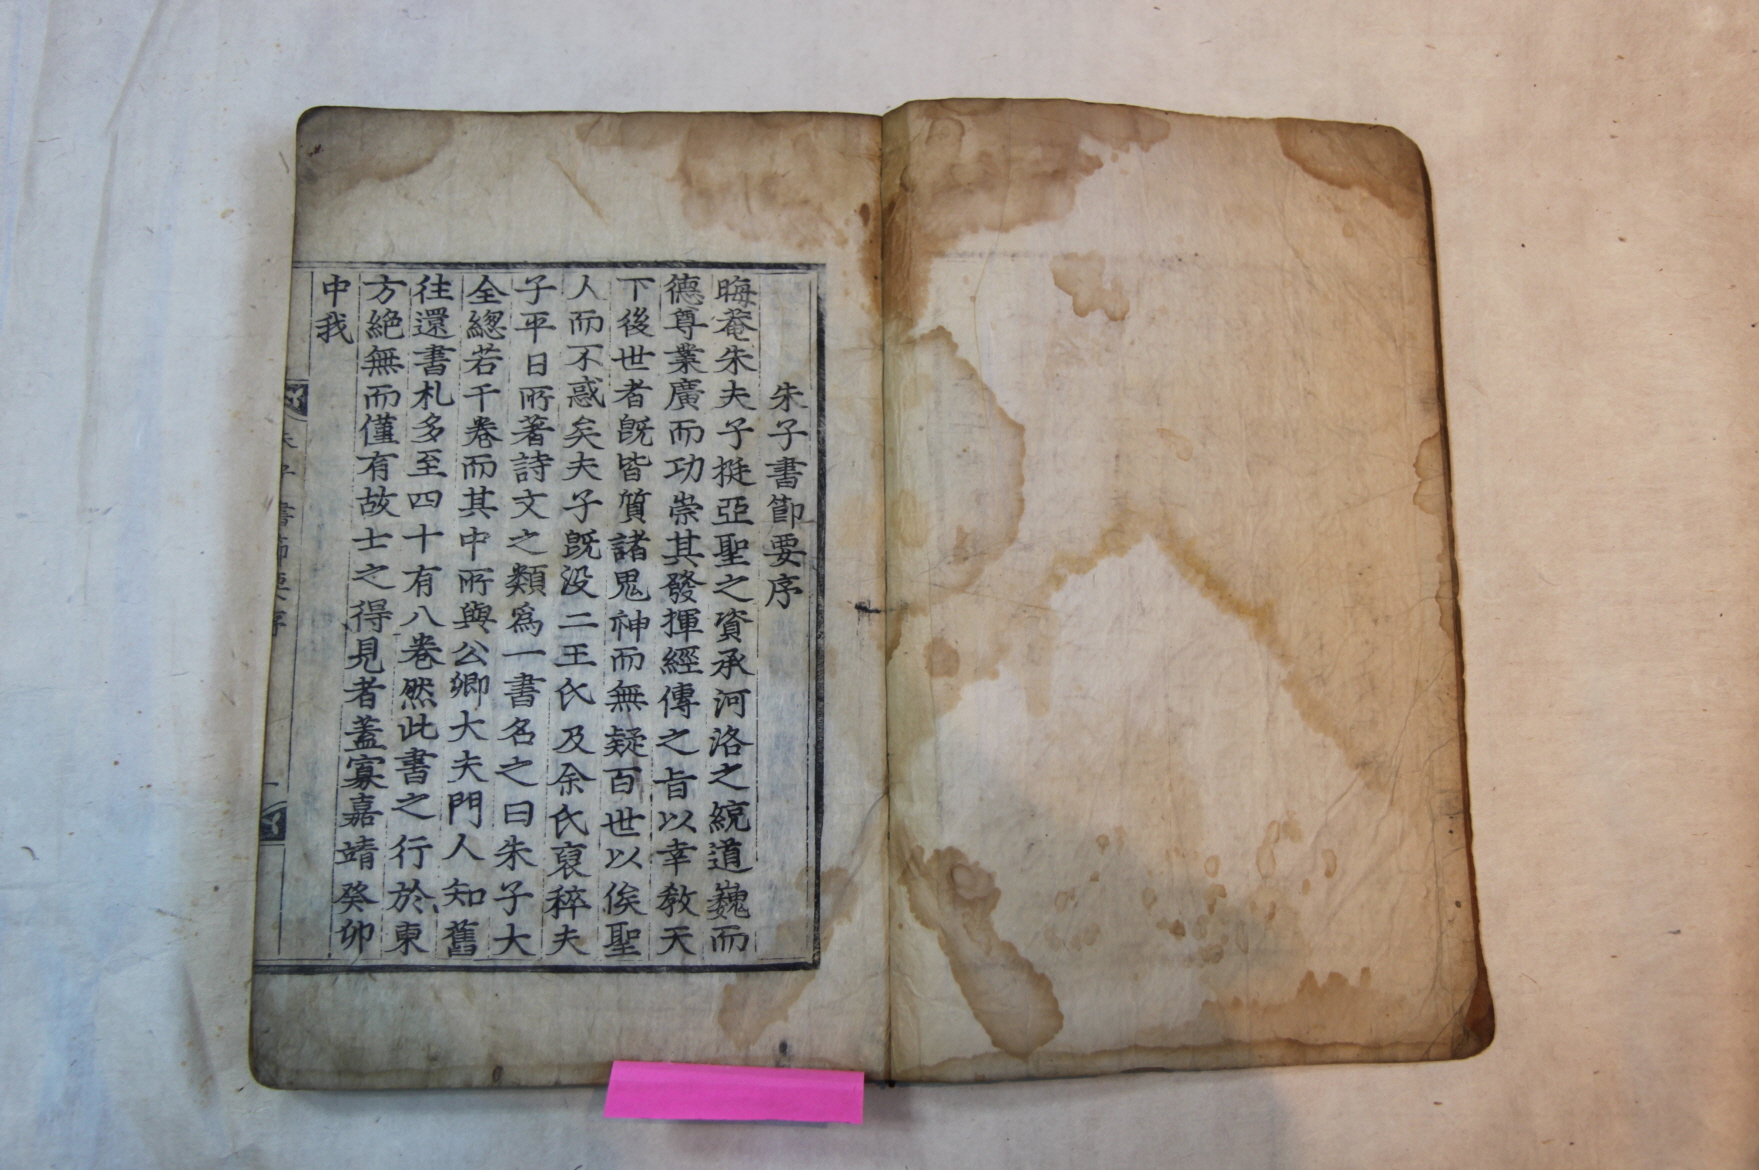 朱子書節要序
晦菴朱夫子挺亞聖之資承河洛之統道巍而
德尊業廣而功崇其發揮經傳之旨以幸教天
下後世者旣皆質諸鬼神而無疑百世以俟聖
人而不惑矣夫子旣没二王氏及余氏裒稡夫
子平日所著詩文之類爲一書名之曰朱子大
全緫若干卷而其中所與公卿大夫門人知舊
往還書札多至四十有八卷然此書之行於東
方絶無而僅有故士之得見者蓋寡嘉靖癸卯
中我
朱子書節要序
一